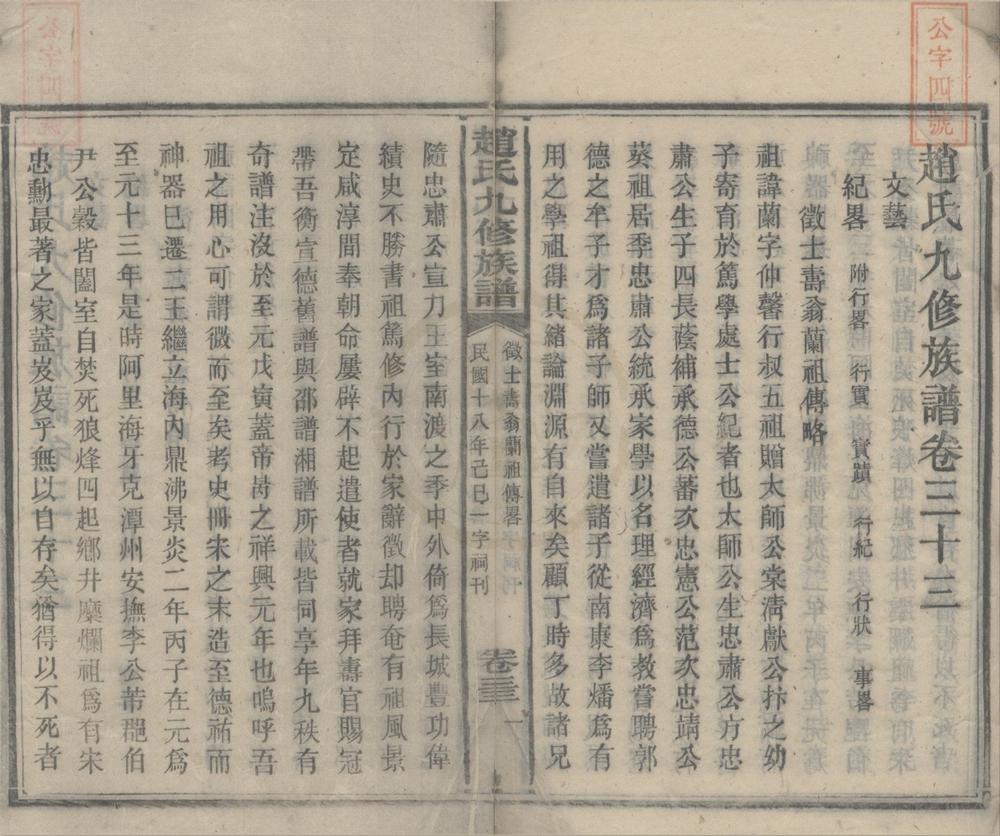 公字四號
趙氏九修族譜卷三十三
文藝
紀畧 附行畧 行實 實蹟 行紀 行狀 事畧
徵士壽翁蘭祖傳略
祖諱蘭字仲馨行叔五祖贈太師公棠淸獻公抃之幼
子寄育於篤學處士公紀者也太師公生忠肅公方忠
肅公生子四長蔭補承德公蕃次忠憲公范次忠靖公
葵祖居季忠肅公統承家學以名理經濟爲教嘗聘郭
德之牟子才爲諸子師又嘗遣諸子從南康李燔爲有
用之學祖得其緒論淵源有自來矣顧丁時多故諸兄
趙氏九修族譜
徵士壽翁蘭祖傳畧
民國十八年己巳一字祠刊
卷三十三 一
隨忠肅公宣力王室南渡之季中外倚爲長城豐功偉
績史不勝書祖篤修內行於家辭徵却聘奄有祖風景
定咸淳間奉朝命屢辟不起遣使者就家拜壽官賜冠
帶吾衡宣德舊譜與邵譜湘譜所載皆同享年九秩有
奇譜注沒於至元戊寅蓋帝昺之祥興元年也嗚呼吾
祖之用心可謂微而至矣考史冊宋之末造至德祐而
神器已遷二王繼立海內鼎沸景炎二年丙子在元爲
至元十三年是時阿里海牙克潭州安撫李公芾郡伯
尹公穀皆闔室自焚死狼烽四起鄉井糜爛祖爲有宋
忠勳最著之家蓋岌岌乎無以自存矣猶得以不死者
公字四號